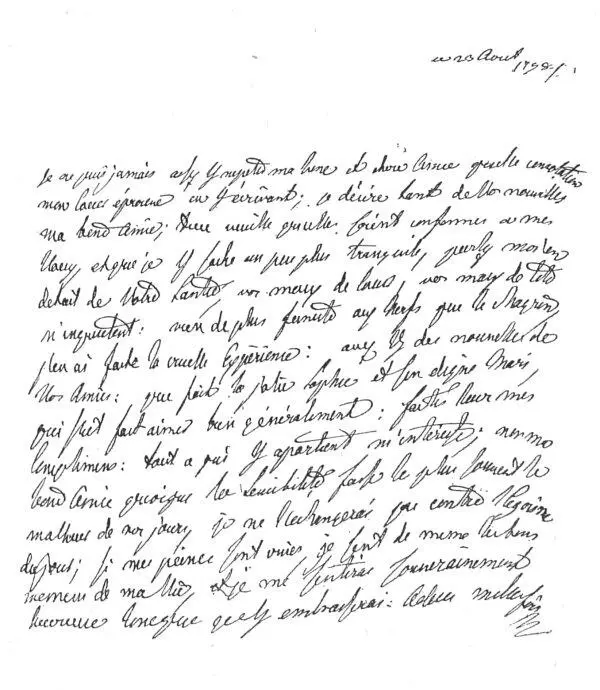 ce 23 Aout
1798
Je ne puis jamais assez ma bone et chere Amie quelle consolation
mon coeur éprouve en t'écrivant; je désire tant de vos nouvelles
ma bone Amie; Dieu veuille quelles soient conformes a mes
voeux, et que je y sache un peu plus tranquile, parlez moi en
detail de votre santé, vos maux de coeur, vos maux de tete
m'inquietent: rien de plus funeste aux nerfs que le chagrin,
j'en ai fait la cruelle Expérience: des nouvelles de
vos Amies: que fait la jolie Sophie et son digne Mari,
qui s'est fait aimer bien généralement: faites leur mes
Complimens: tout a qui y apartient m'intéresse; non ma
bone Amie quoique la sensibilité fasse le plus souvent le
malheur de nos jours, je ne l'echengerai pas contre l'égoisme
du jour; si mes peines sont vives, je sent de meme les bons
momens de ma vie, et je me sentirai souverainement
heureuse lorsque je embrasserai: adieu mille fois